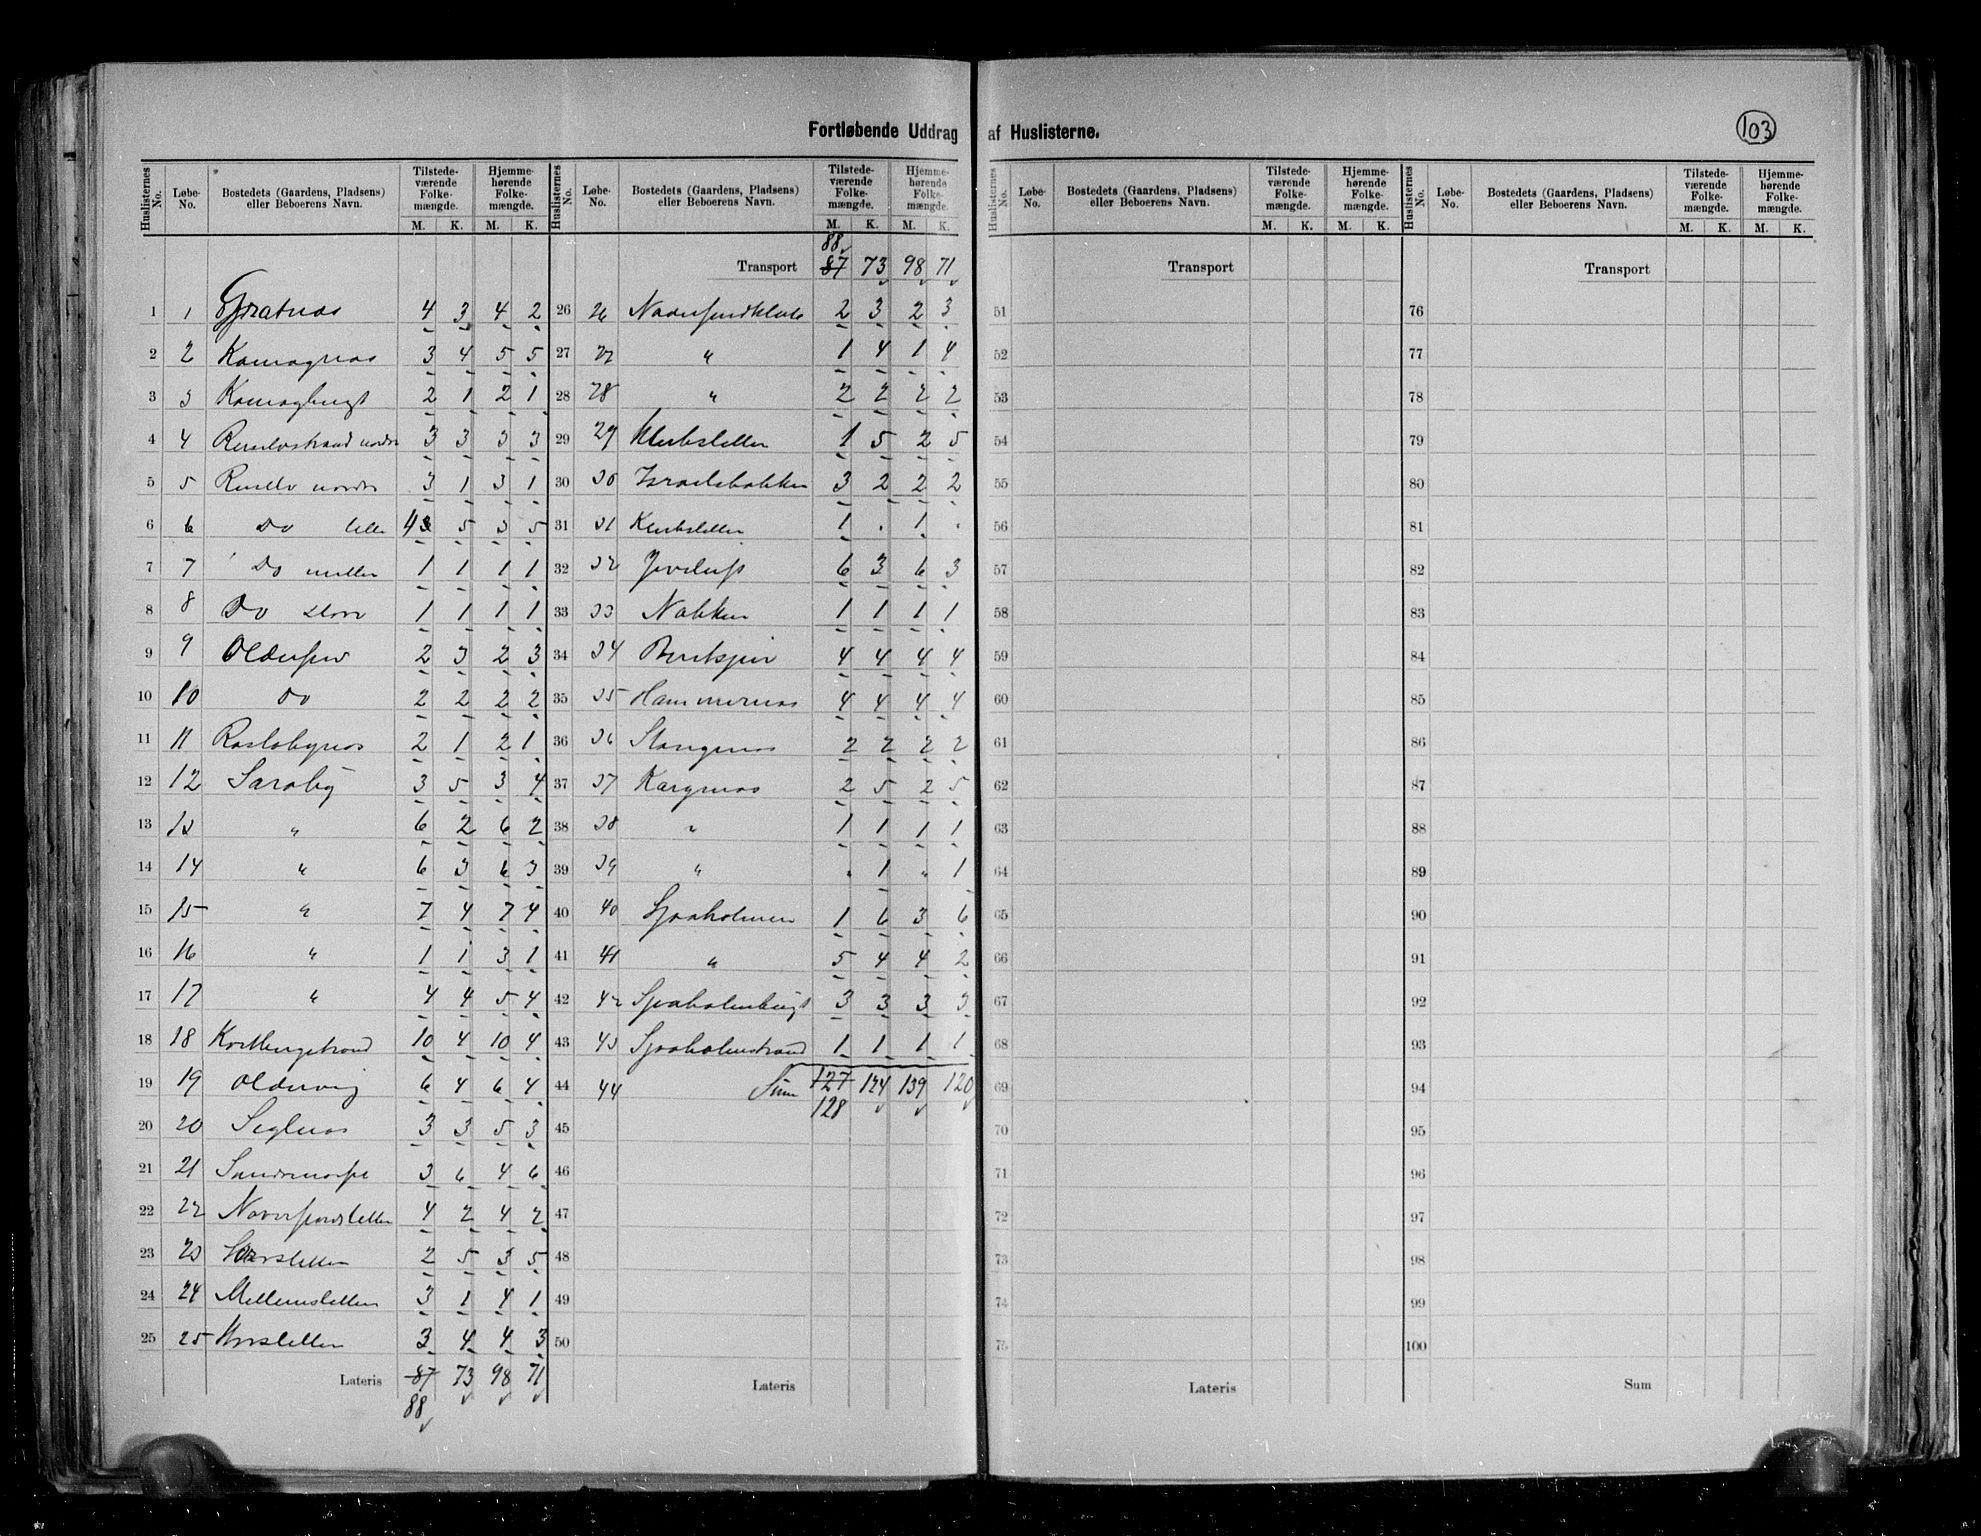 Fortløbende Uddrag af Huslisterne.
103
Huslisternes No. Løbe-No. Bostedets (Gaardens, Pladsens) eller Beboerens Navn. Tilstedeværende Folkemængde. M. K. Hjemmehørende Folkemængde. M. K.
1 1 4 3 4 2
2 2 Komagnæs 3 4 5 5
3 3 Komagbugt 2 1 2 1
4 4 3 3 3 3
5 5 3 1 3 1
6 6 Do lille 4 5 3 5
7 7 Do mellem 1 1 1 1
8 8 Do store 1 1 1 1
9 9 Olderfjord 2 3 2 3
10 10 Do 2 2 2 2
11 11 Rastabynæs 2 1 2 1
12 12 Saraby 3 5 3 4
13 13 " 6 2 6 2
14 14 " 6 3 6 3
15 15 " 7 4 7 4
16 16 " 1 1 3 1
17 17 " 4 4 5 4
18 18 10 4 10 4
19 19 Oldervig 6 4 6 4
20 20 Seglnæs 3 3 5 3
21 21 3 6 4 6
22 22 Naverfjordsletten 4 2 4 2
23 23 2 5 3 5
24 24 Mellemsletten 3 1 4 1
25 25 3 4 4 3
Lateris 87 73 98 71
88
Huslisternes No. Løbe-No. Bostedets (Gaardens, Pladsens) eller Beboerens Navn. Tilstedeværende Folkemængde. M. K. Hjemmehørende Folkemængde. M. K.
88
Transport 87 73 98 71
26 26 2 3 2 3
27 27 " 1 4 1 4
28 28 " 2 2 2 2
29 29 1 5 2 5
30 30 Israelsbakken 3 2 2 2
31 31 1 . 1 .
32 32 6 3 6 3
33 33 Nakken 1 1 1 1
34 34 4 4 4 4
35 35 Hammernæs 4 4 4 4
36 36 Stangnæs 2 2 2 2
37 37 Kargenæs 2 5 2 5
38 38 " 1 1 1 1
39 39 " " 1 " 1
40 40 Sjaaholmen 1 6 3 6
41 41 " 5 4 4 2
42 42 Sjaaholmbugt 3 3 3 3
43 43 Sjaaholmstrand 1 1 1 1
44 44 Sum 127 124 139 120
128
45
46
47
48
49
50
Lateris
Huslisternes No. Løbe-No. Bostedets (Gaardens, Pladsens) eller Beboerens Navn. Tilstedeværende Folkemængde. M. K. Hjemmehørende Folkemængde. M. K.
Transport
51
52
53
54
55
56
57
58
59
60
61
62
63
64
65
66
67
68
69
70
71
72
73
74
75
Lateris
Huslisternes No. Løbe-No. Bostedets (Gaardens, Pladsens) eller Beboerens Navn. Tilstedeværende Folkemængde. M. K. Hjemmehørende Folkemængde. M. K.
Transport
76
77
78
79
80
81
82
83
84
85
86
87
88
89
90
91
92
93
94
95
96
97
98
99
100
Sum